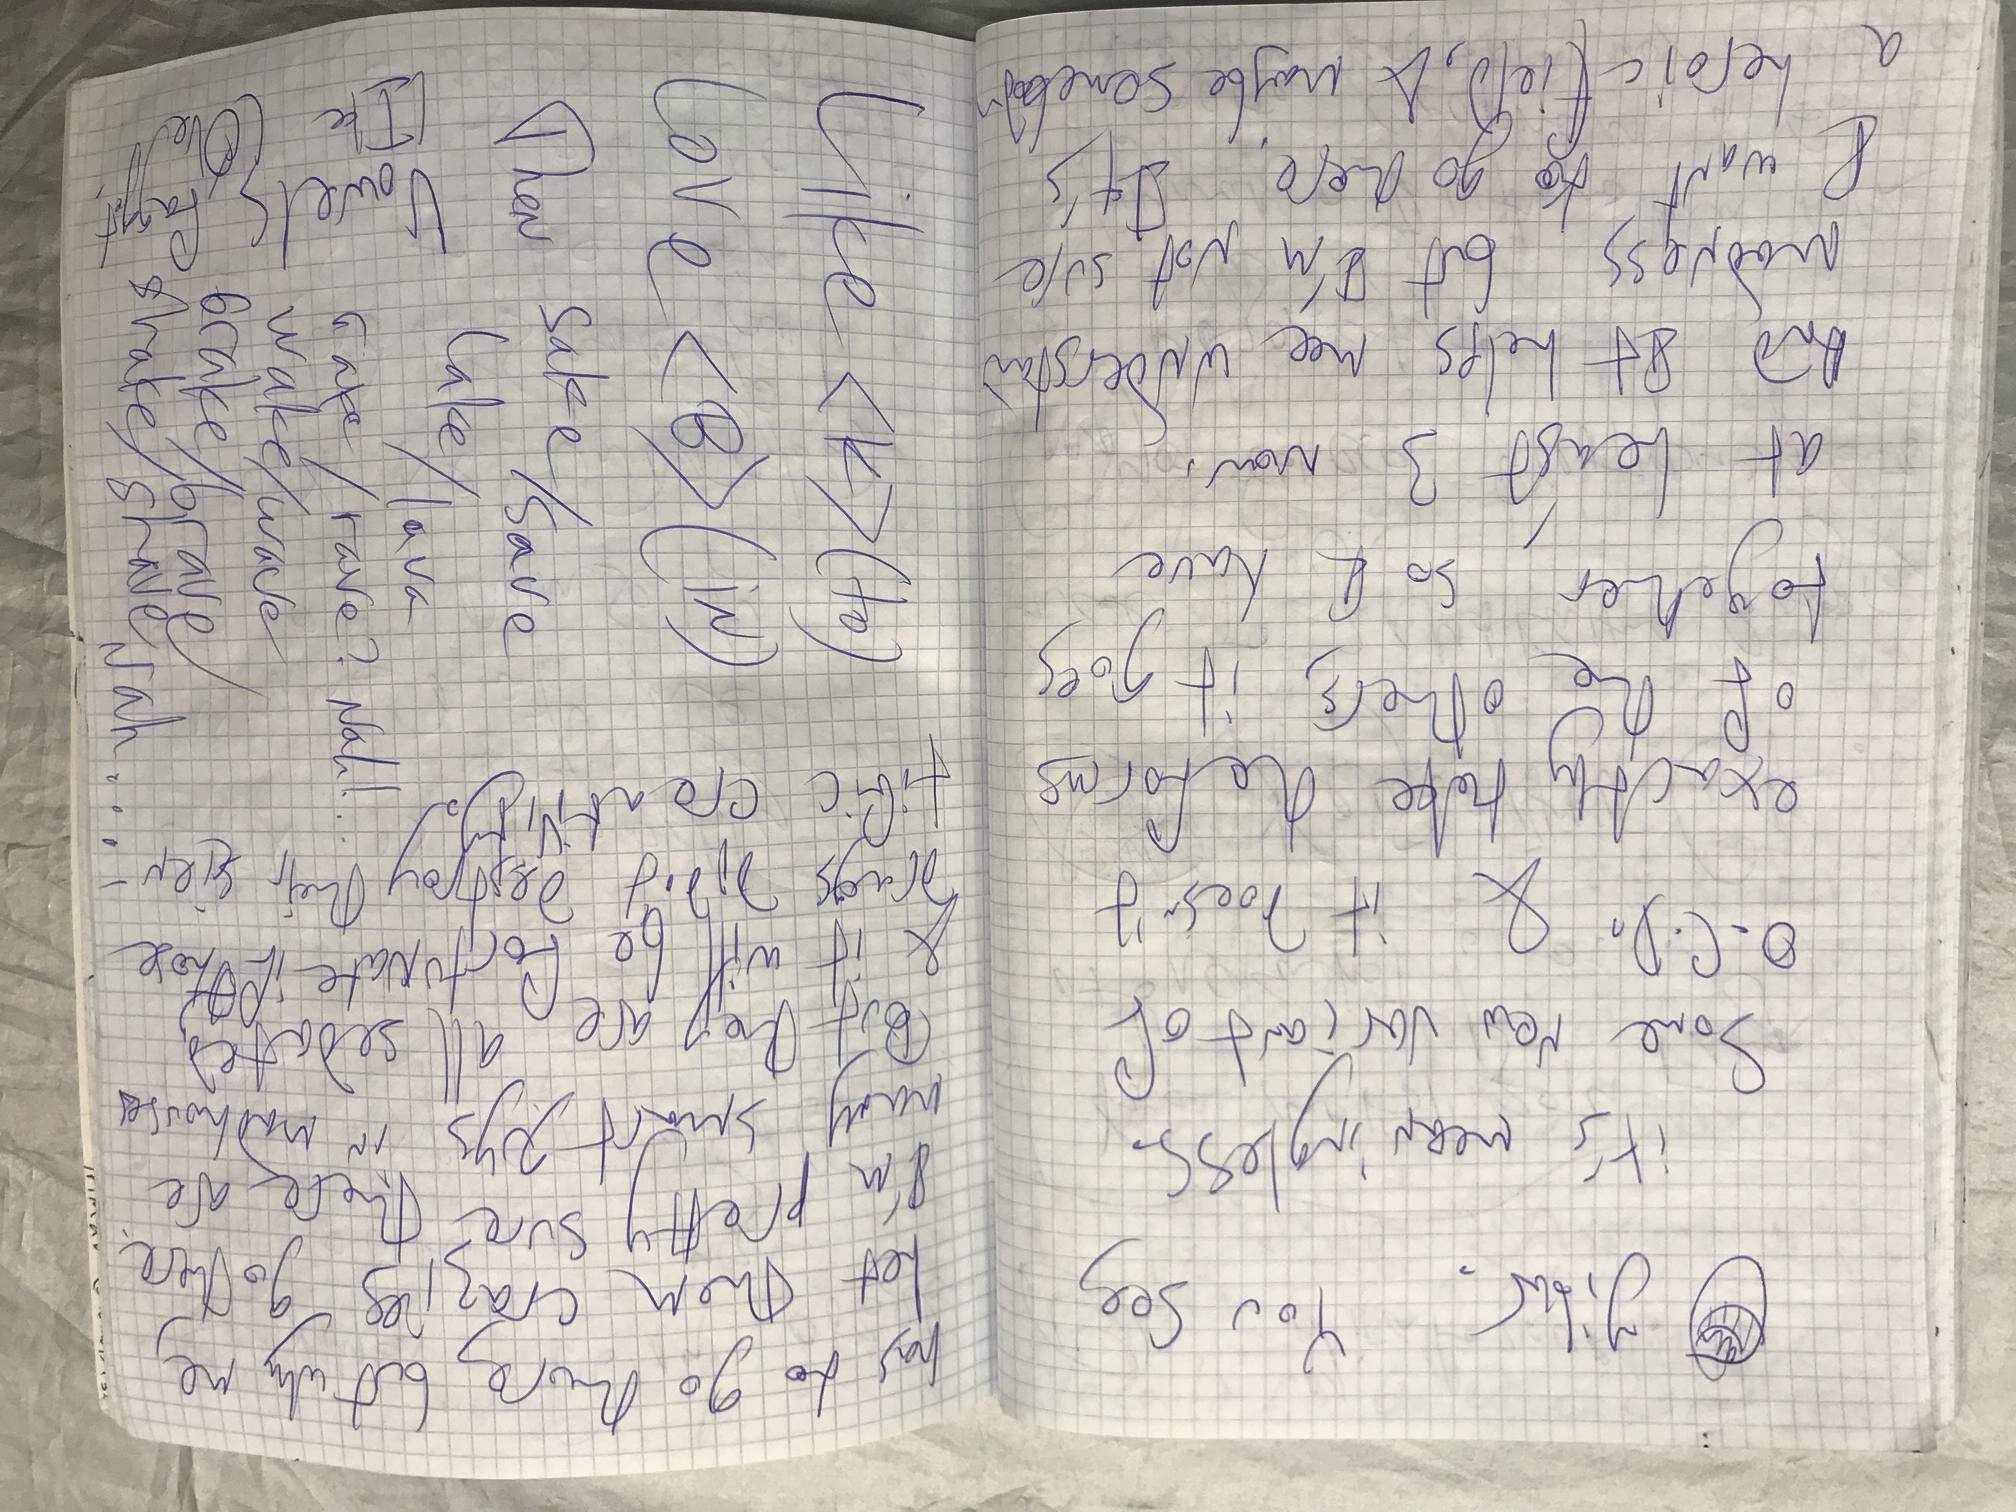 You see,
it's meaningless.
Some new variant of
O.C.D. & it doesn't
exactly take the forms
of the others, it goes
together, so I have
at least 3 now.
And It helps mee understand
madness but I'm not sure
I want to go there. It's
a heroic field, & maybe somebody
has to go there but why me
Let them crazies go there.
I'm pretty sure there are
many smart guys in madhouses
But they are all sedated,
& it will be fortunate if those
drugs didn't destroy their scien
tific creativity.
Like <K> (ta)
Love <B> (in)
Then sake/save
Lake/lava
Like rave? Nah!...
vowels wake/wave
Love brake/brave
shake/shave, Nah....!